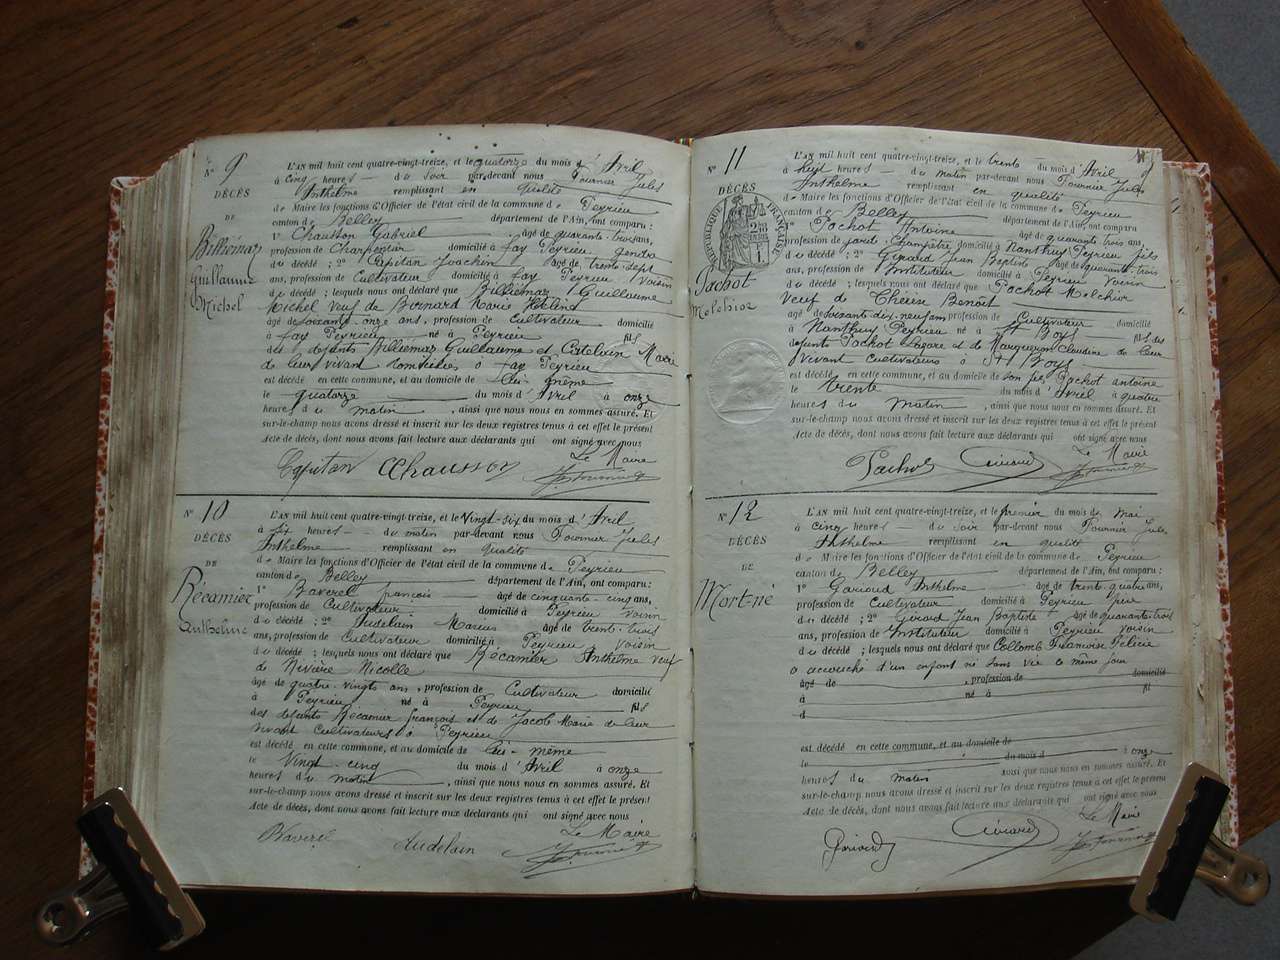 N° 9
DÉCÈS
DE
Billiémaz
Guillaume
Michel
L'AN mil huit cent quatre-vingt-treize, et le quatorze du mois d' Avril
à cinq heures du soir par-devant nous Fournier Jules
Anthelme remplissant en qualité
de Maire les fonctions d'Officier de l'état civil de la commune de Peyrieu
canton de Belley département de l'Ain, ont comparu :
1° Chausson Gabriel âgé de quarante-trois ans,
profession de Charpentier domicilié à fay Peyrieu gendre
du décédé ; 2° Capitan Joachim âgé de trente-sept
ans, profession de Cultivateur domicilié à fay Peyrieu voisin
du décédé ; lesquels nous ont déclaré que Billiemaz Guillaume
Michel veuf de Bernard Marie
âgé de soixante-onze ans, profession de Cultivateur domicilié
à fay Peyrieu né à Peyrieu fils
des défunts Billiemaz Guillaume et Catelain Marie
de leur vivant domiciliés à fay Peyrieu
est décédé en cette commune, et au domicile de lui-même
le quatorze du mois d' Avril à onze
heures du matin, ainsi que nous nous en sommes assuré. Et
sur-le-champ nous avons dressé et inscrit sur les deux registres tenus à cet effet le présent
Acte de décès, dont nous avons fait lecture aux déclarants qui ont signé avec nous
Le Maire
Capitan Chausson JFournier
N° 10
DÉCÈS
DE
Récamier
Anthelme
L'AN mil huit cent quatre-vingt-treize, et le vingt-six du mois d' Avril
à six heures du matin par-devant nous Fournier Jules
Anthelme remplissant en qualité
de Maire les fonctions d'Officier de l'état civil de la commune de Peyrieu
canton de Belley département de l'Ain, ont comparu :
1° Baverel françois âgé de cinquante-cinq ans,
profession de Cultivateur domicilié à Peyrieu voisin
du décédé ; 2° Audelain Marius âgé de trente-trois
ans, profession de Cultivateur domicilié à Peyrieu voisin
du décédé ; lesquels nous ont déclaré que Récamier Anthelme veuf
de Rivière Nicolle
âgé de quatre-vingts ans, profession de Cultivateur domicilié
à Peyrieu né à Peyrieu fils
des défunts Récamier françois et de Jacob Marie de leur
vivant Cultivateurs à Peyrieu
est décédé en cette commune, et au domicile de lui-même
le vingt-cinq du mois d' Avril à onze
heures du matin, ainsi que nous nous en sommes assuré. Et
sur-le-champ nous avons dressé et inscrit sur les deux registres tenus à cet effet le présent
Acte de décès, dont nous avons fait lecture aux déclarants qui ont signé avec nous
Le Maire
Baverel Audelain JFournier
N° 11
DÉCÈS
RÉPUBLIQUE FRANÇAISE
Pachot
Melchior
L'AN mil huit cent quatre-vingt-treize, et le trente du mois d' Avril
à huit heures du matin par-devant nous Fournier Jules
Anthelme remplissant en qualité
de Maire les fonctions d'Officier de l'état civil de la commune de Peyrieu
canton de Belley département de l'Ain, ont comparu :
1° Pachot Antoine âgé de quarante trois ans,
profession de garde-Champêtre domicilié à Nanthuy Peyrieu fils
du décédé ; 2° Girard Jean Baptiste âgé de quarante-trois
ans, profession de Instituteur domicilié à Peyrieu voisin
du décédé ; lesquels nous ont déclaré que Pachot Melchior
veuf de Benoît
âgé de soixante-dix-neuf ans, profession de Cultivateur domicilié
à Nanthuy Peyrieu né à St Boys fils des
défunts Pachot Lazare et de Margueron Claudine de leur
vivant cultivateurs à St Boys
est décédé en cette commune, et au domicile de son fils Pachot antoine
le trente du mois d' Avril à quatre
heures du matin, ainsi que nous nous en sommes assuré. Et
sur-le-champ nous avons dressé et inscrit sur les deux registres tenus à cet effet le présent
Acte de décès, dont nous avons fait lecture aux déclarants qui ont signé avec nous
Le Maire
Pachot Girard JFournier
N° 12
DÉCÈS
DE
Mort-né
L'AN mil huit cent quatre-vingt-treize, et le premier du mois de mai
à cinq heures du soir par-devant nous Fournier Jules
Anthelme remplissant en qualité
de Maire les fonctions d'Officier de l'état civil de la commune de Peyrieu
canton de Belley département de l'Ain, ont comparu :
1° Garioud Anthelme âgé de trente quatre ans,
profession de Cultivateur domicilié à Peyrieu père
du décédé ; 2° Girard Jean Baptiste âgé de quarante-trois
ans, profession de Instituteur domicilié à Peyrieu voisin
du décédé ; lesquels nous ont déclaré que Collomb Françoise Félicie
a accouché d'un enfant né sans vie ce même jour
âgé de , profession de domicilié
à né à fil
d
est décédé en cette commune, et au domicile de
le du mois d à onze
heures du matin ainsi que nous nous en sommes assuré. Et
sur-le-champ nous avons dressé et inscrit sur les deux registres tenus à cet effet le présent
Acte de décès, dont nous avons fait lecture aux déclarants qui ont signé avec nous
Le Maire
Garioud Girard JFournier